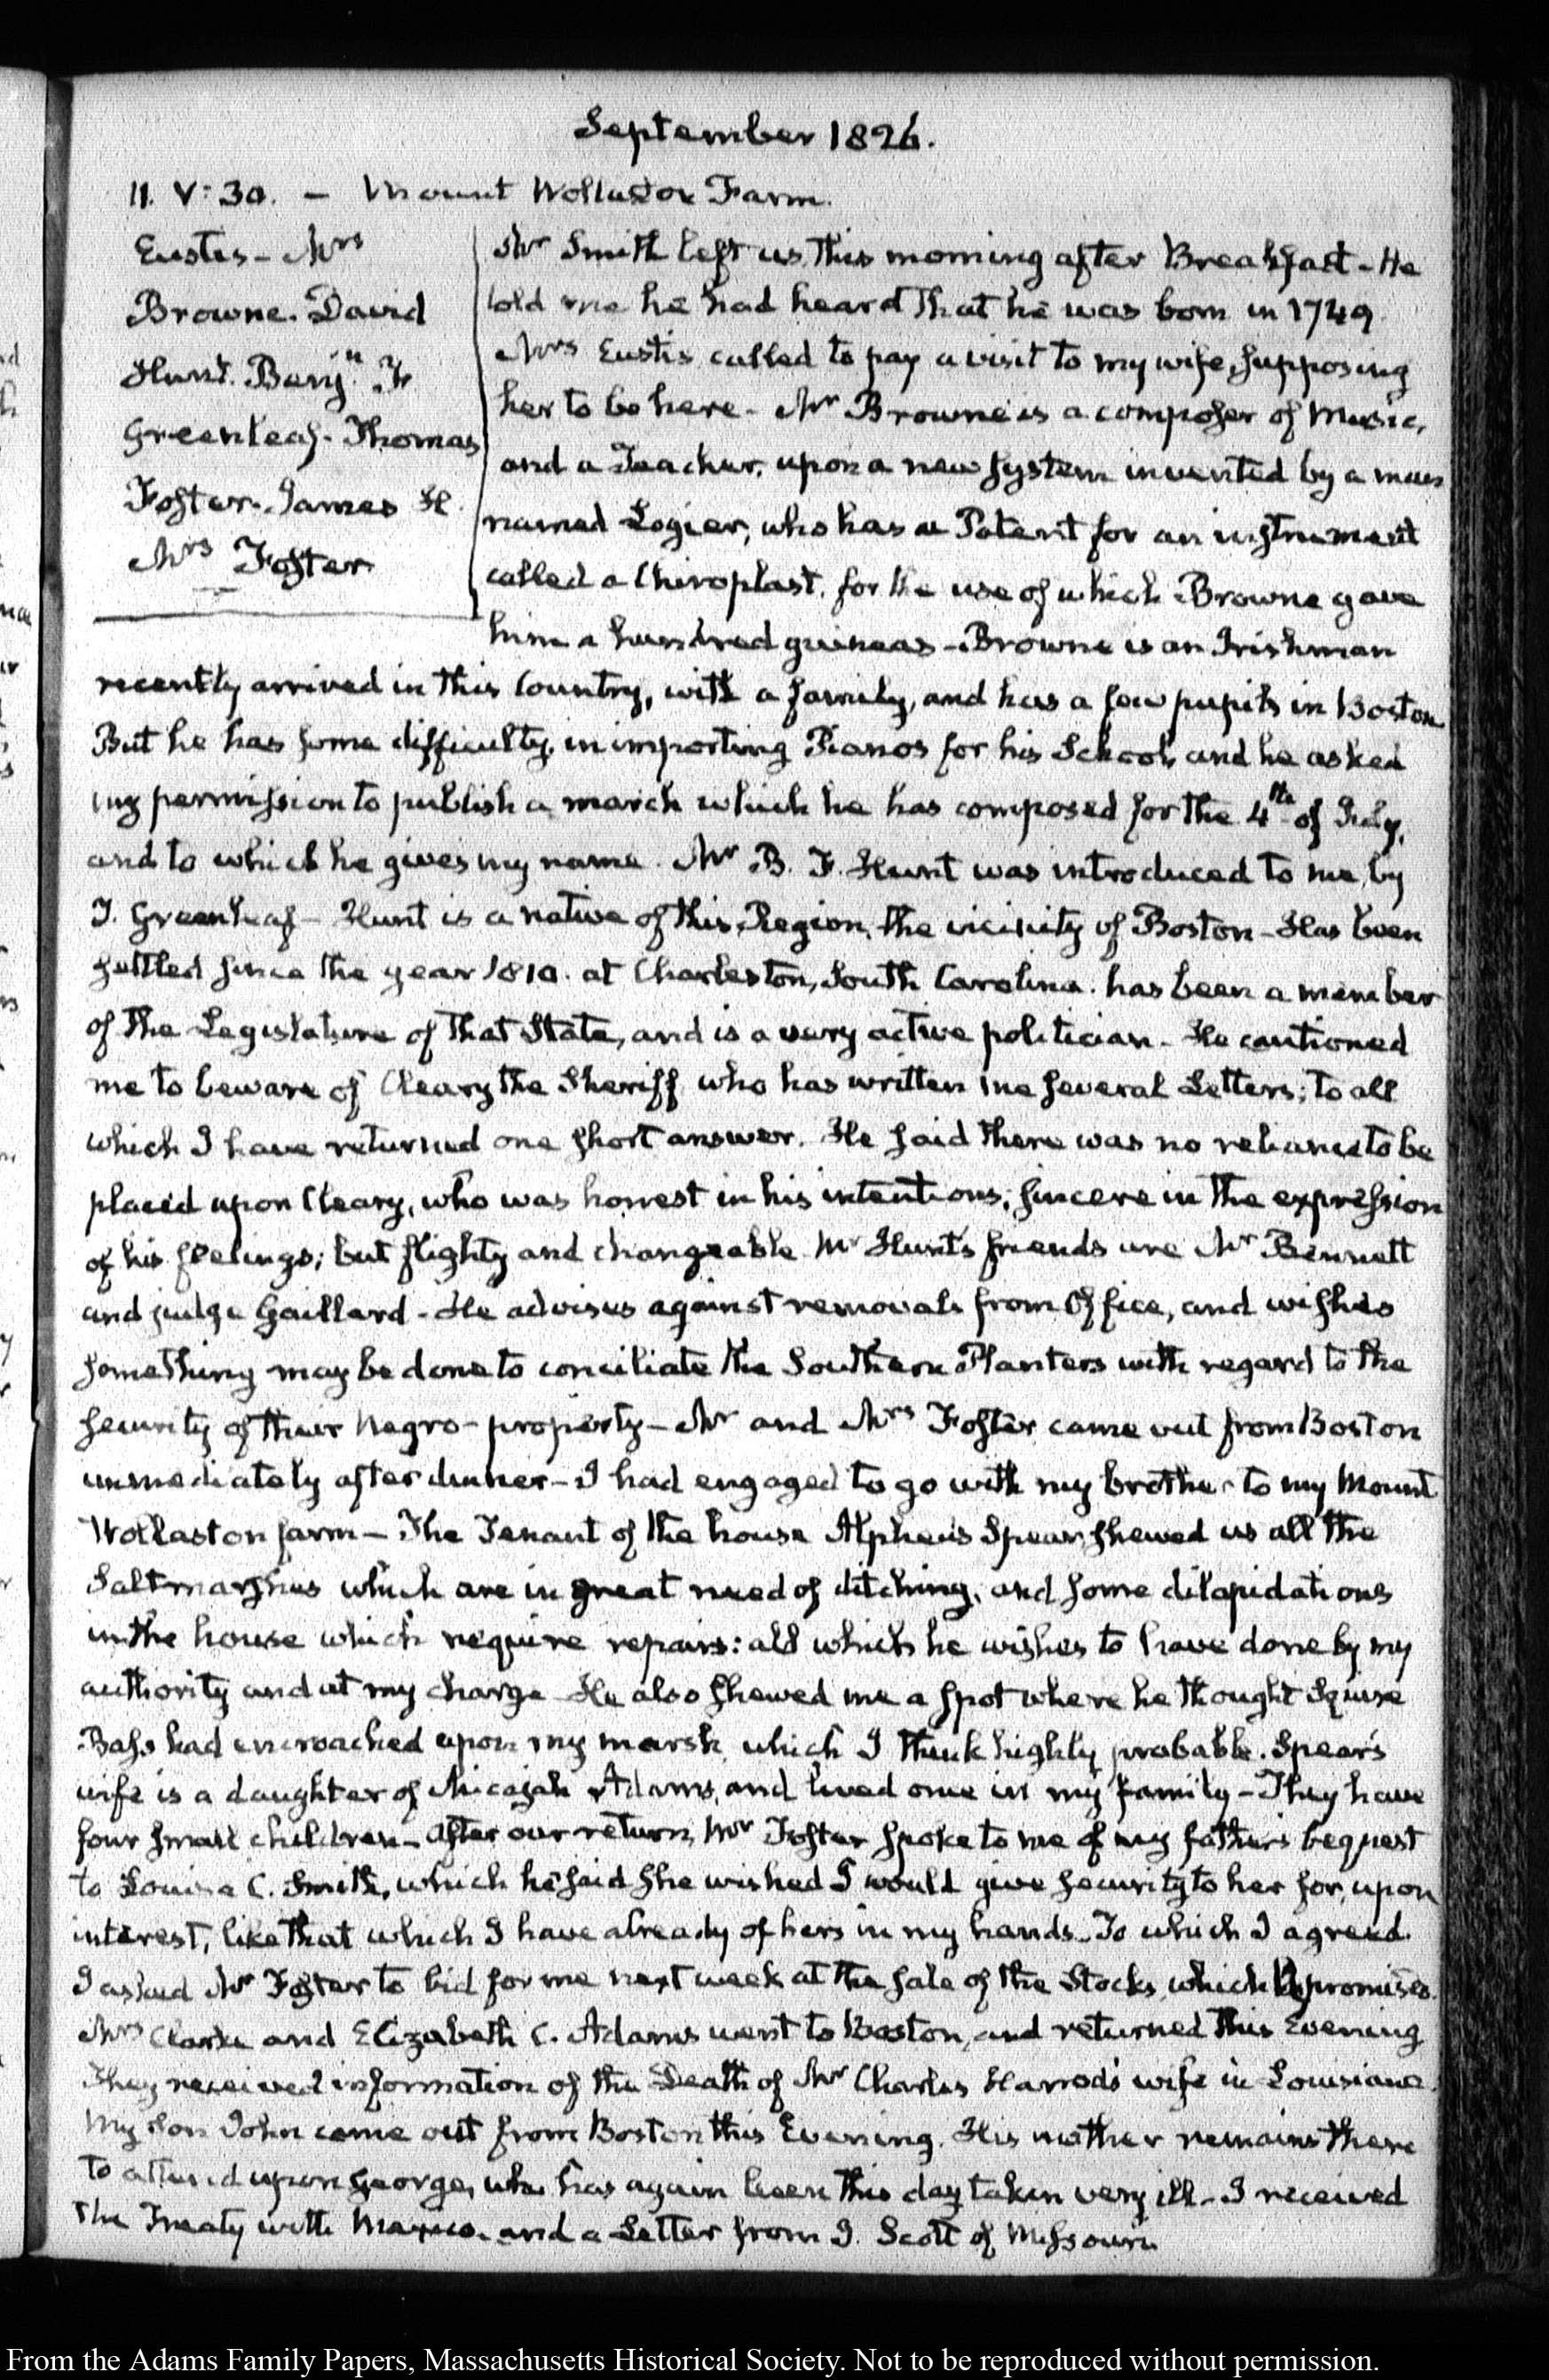 September 1826.
11. V:30. — Mount Wollaston Farm.
Eustis - Mrs
Browne. David
Hunt. Benjn. F.
Greenleaf. Thomas
Foster. James H.
Mrs Foster
Mr Smith left us this morning after Breakfast - He
told me he had heard that he was born in 1749.
Mrs Eustis called to pay a visit to my wife, supposing
her to be here - Mr Browne is a composer of Music,
and a Teacher, upon a new system invented by a man
named Logier, who has a Patent for an instrument
called a Chiroplast, for the use of which Browne gave
him a hundred guineas - Browne is an Irishman
recently arrived in this Country, with a family, and has a few pupils in Boston
But he has some difficulty, in importing Pianos for his School, and he asked
my permission to publish a march which he has composed for the 4th of July,
and to which he gives my name. Mr B. F. Hunt was introduced to me, by
T. Greenleaf - Hunt is a native of this Region, the vicinity of Boston - Has been
settled since the year 1810. at Charleston, South Carolina. has been a member
of the Legislature of that State, and is a very active politician - He cautioned
me to beware of Cleary the Sheriff, who has written me several Letters; to all
which I have returned one short answer. He said there was no reliance to be
placed upon Cleary, who was honest in his intentions; sincere in the expression
of his feelings; but flighty and changeable. Mr Hunt's friends are Mr Bennett
and judge Gaillard - He advises against removals from Office, and wishes
something may be done to conciliate the Southern Planters with regard to the
security of their Negro-property - Mr and Mrs Foster came out from Boston
immediately after dinner - I had engaged to go with my brother to my Mount
Wollaston farm - The Tenant of the house Alpheus Spear, shewed us all the
Saltmarshes which are in great need of ditching, and some dilapidations
in the house which require repairs: all which he wishes to have done by my
authority and at my charge - He also shewed me a spot where he thought Squire
Bass had encroached upon my marsh, which I think highly probable. Spear's
wife is a daughter of Micajah Adams, and lived once in my family - They have
four small children - After our return, Mr Foster spoke to me of my father's bequest
to Louisa C. Smith, which he said she wished I would give security to her for, upon
interest, like that which I have already of hers in my hands. To which I agreed.
I asked Mr Foster to bid for me next week at the sale of the Stocks, which he promises.
Mrs Clarke and Elizabeth C. Adams went to Boston, and returned this Evening
They received information of the Death of Mr Charles Harrod's wife in Louisiana.
My son John came out from Boston this Evening. His mother remains there
to attend upon George, who has again been this day taken very ill - I received
the Treaty with Mexico. and a Letter from J. Scott of Missouri
From the Adams Family Papers, Massachusetts Historical Society. Not to be reproduced without permission.